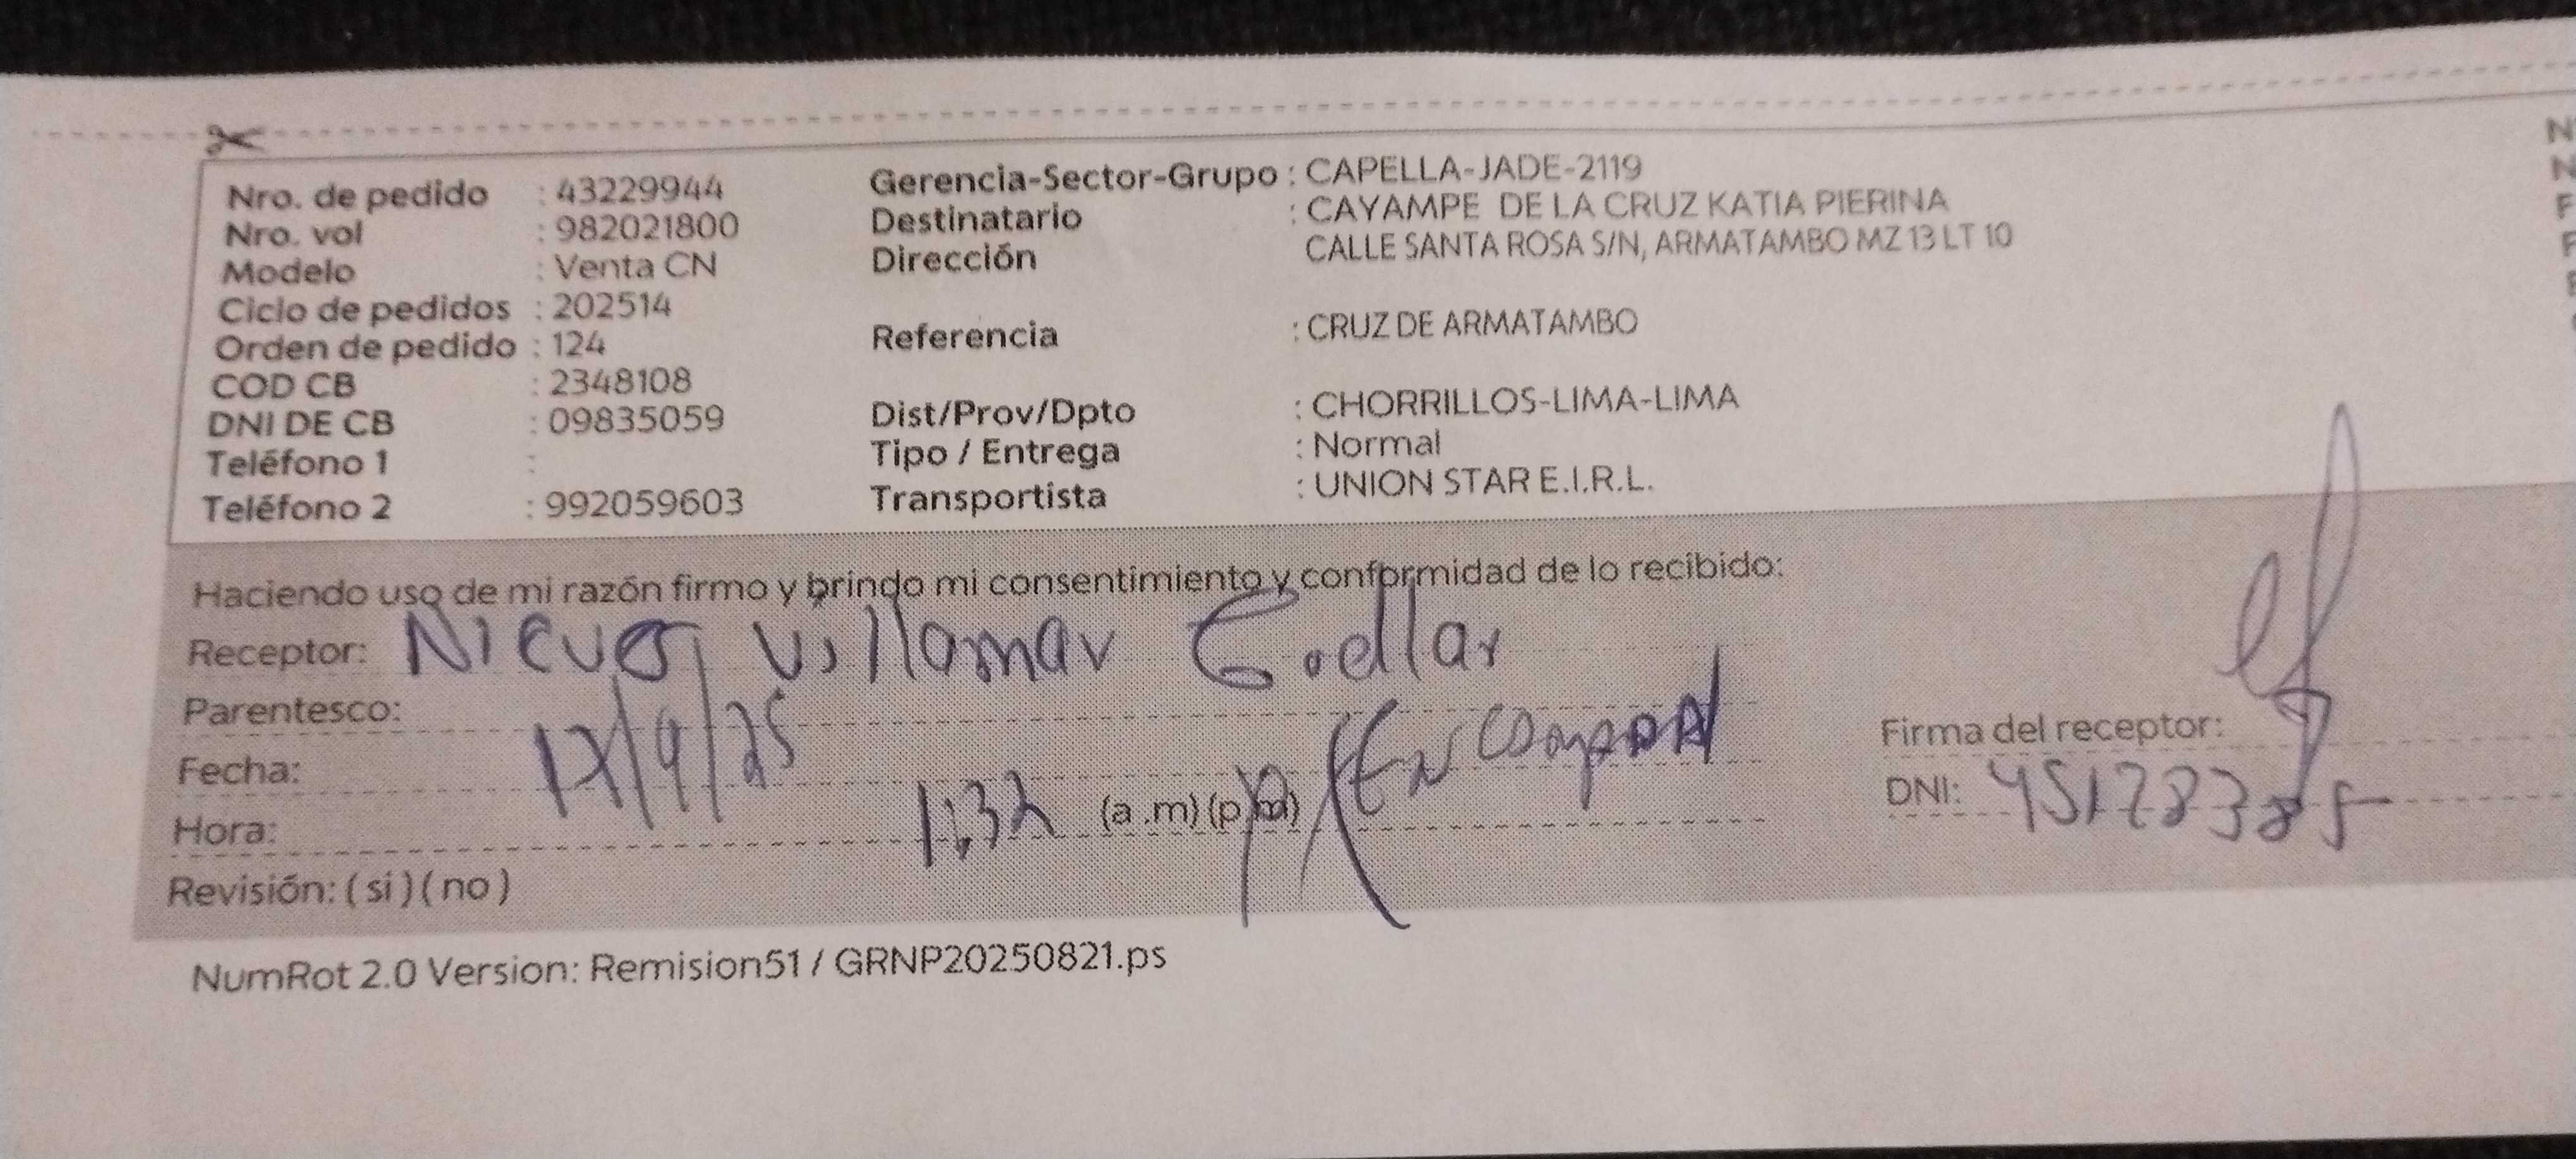 Nro. de pedido : 43229944
Nro. vol : 982021800
Modelo : Venta CN
Ciclo de pedidos : 202514
Orden de pedido : 124
COD CB : 2348108
DNI DE CB : 09835059
Teléfono 1 :
Teléfono 2 : 992059603
Gerencia-Sector-Grupo : CAPELLA-JADE-2119
Destinatario : CAYAMPE DE LA CRUZ KATIA PIERINA
Dirección CALLE SANTA ROSA S/N, ARMATAMBO MZ 13 LT 10
Referencia : CRUZ DE ARMATAMBO
Dist/Prov/Dpto : CHORRILLOS-LIMA-LIMA
Tipo / Entrega : Normal
Transportista : UNION STAR E.I.R.L.
Haciendo uso de mi razón firmo y brindo mi consentimiento y conformidad de lo recibido:
Receptor: Nieves Villamar
Parentesco:
Fecha: 17/9/25
Hora: 1:32 (a .m) (p.m)
Revisión: ( si ) ( no )
Firma del receptor:
DNI:
NumRot 2.0 Version: Remision51 / GRNP20250821.ps